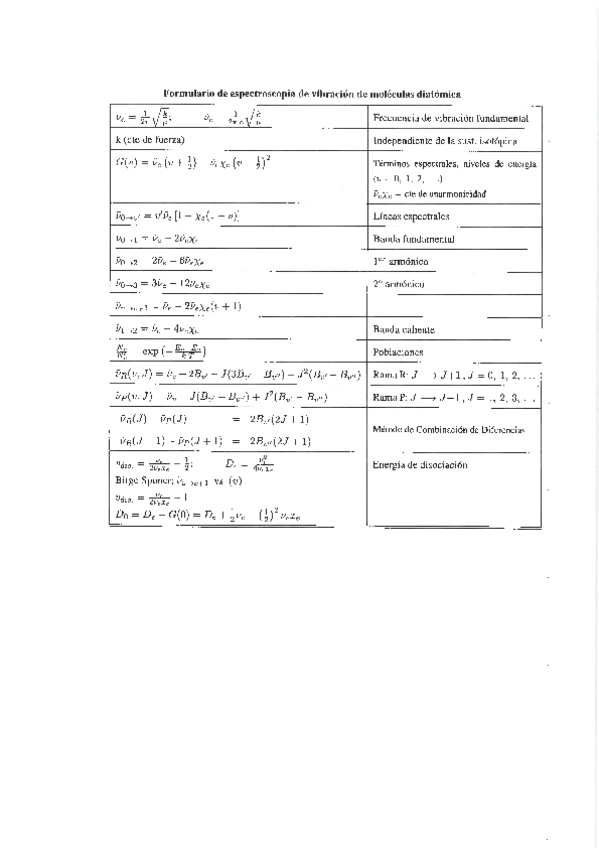 Formulario de espectroscopía de vibración de moléculas diatómica
ν_e = 1/2π √(k/μ); ν̃_e = 1/2πc √(k/μ) Frecuencia de vibración fundamental
k (cte de fuerza) Independiente de la sust. isotópica
G(v) = ν̃_e (v + 1/2) ν̃_e χ_e (v 1/2)² Términos espectrales, niveles de energía
(v 0, 1, 2, ...)
ν̃_eχ_e = cte de anarmonicidad
ν̃_0→v' = v'ν̃_e [1 − χ_e( )] Líneas espectrales
ν̃_0→1 = ν̃_e − 2ν̃_eχ_e Banda fundamental
ν̃_0→2 2ν̃_e − 6ν̃_eχ_e 1er armónico
ν̃_0→3 = 3ν̃_e − 12ν̃_eχ_e 2º armónico
ν̃_e − 2ν̃_eχ_e(v + 1)
ν̃_1→2 = ν̃_e − 4ν_eχ_e Banda caliente
exp (− ) Poblaciones
ν̃_R(v, J) = ν̃_v + 2B_v' − J(3B_v' B_v'') − J²(B_v' − B_v'') Rama R: J → J+1, J = 0, 1, 2, ...
ν̃_P(v, J) ν̃_v J(B_v' − B_v'') + J²(B_v' − B_v'') Rama P: J → J−1, J = 1, 2, 3, ...
ν̃_R(J) ν̃_P(J) = 2B_v'(2J + 1)
Método de Combinación de Diferencias
ν̃_R(J 1) - ν̃_P(J + 1) = 2B_v''(2J + 1)
v_dis. = ν_e/2ν_ex_e − 1/2; D_e = ν_e²/4ν_ex_e Energía de disociación
Birge Sponer: ν̃_v→v+1 vs (v)
v_dis. = ν_e/2ν_ex_e − 1
D_0 = D_e − G(0) = D_e + 1/2 ν_e (1/2)² ν_ex_e